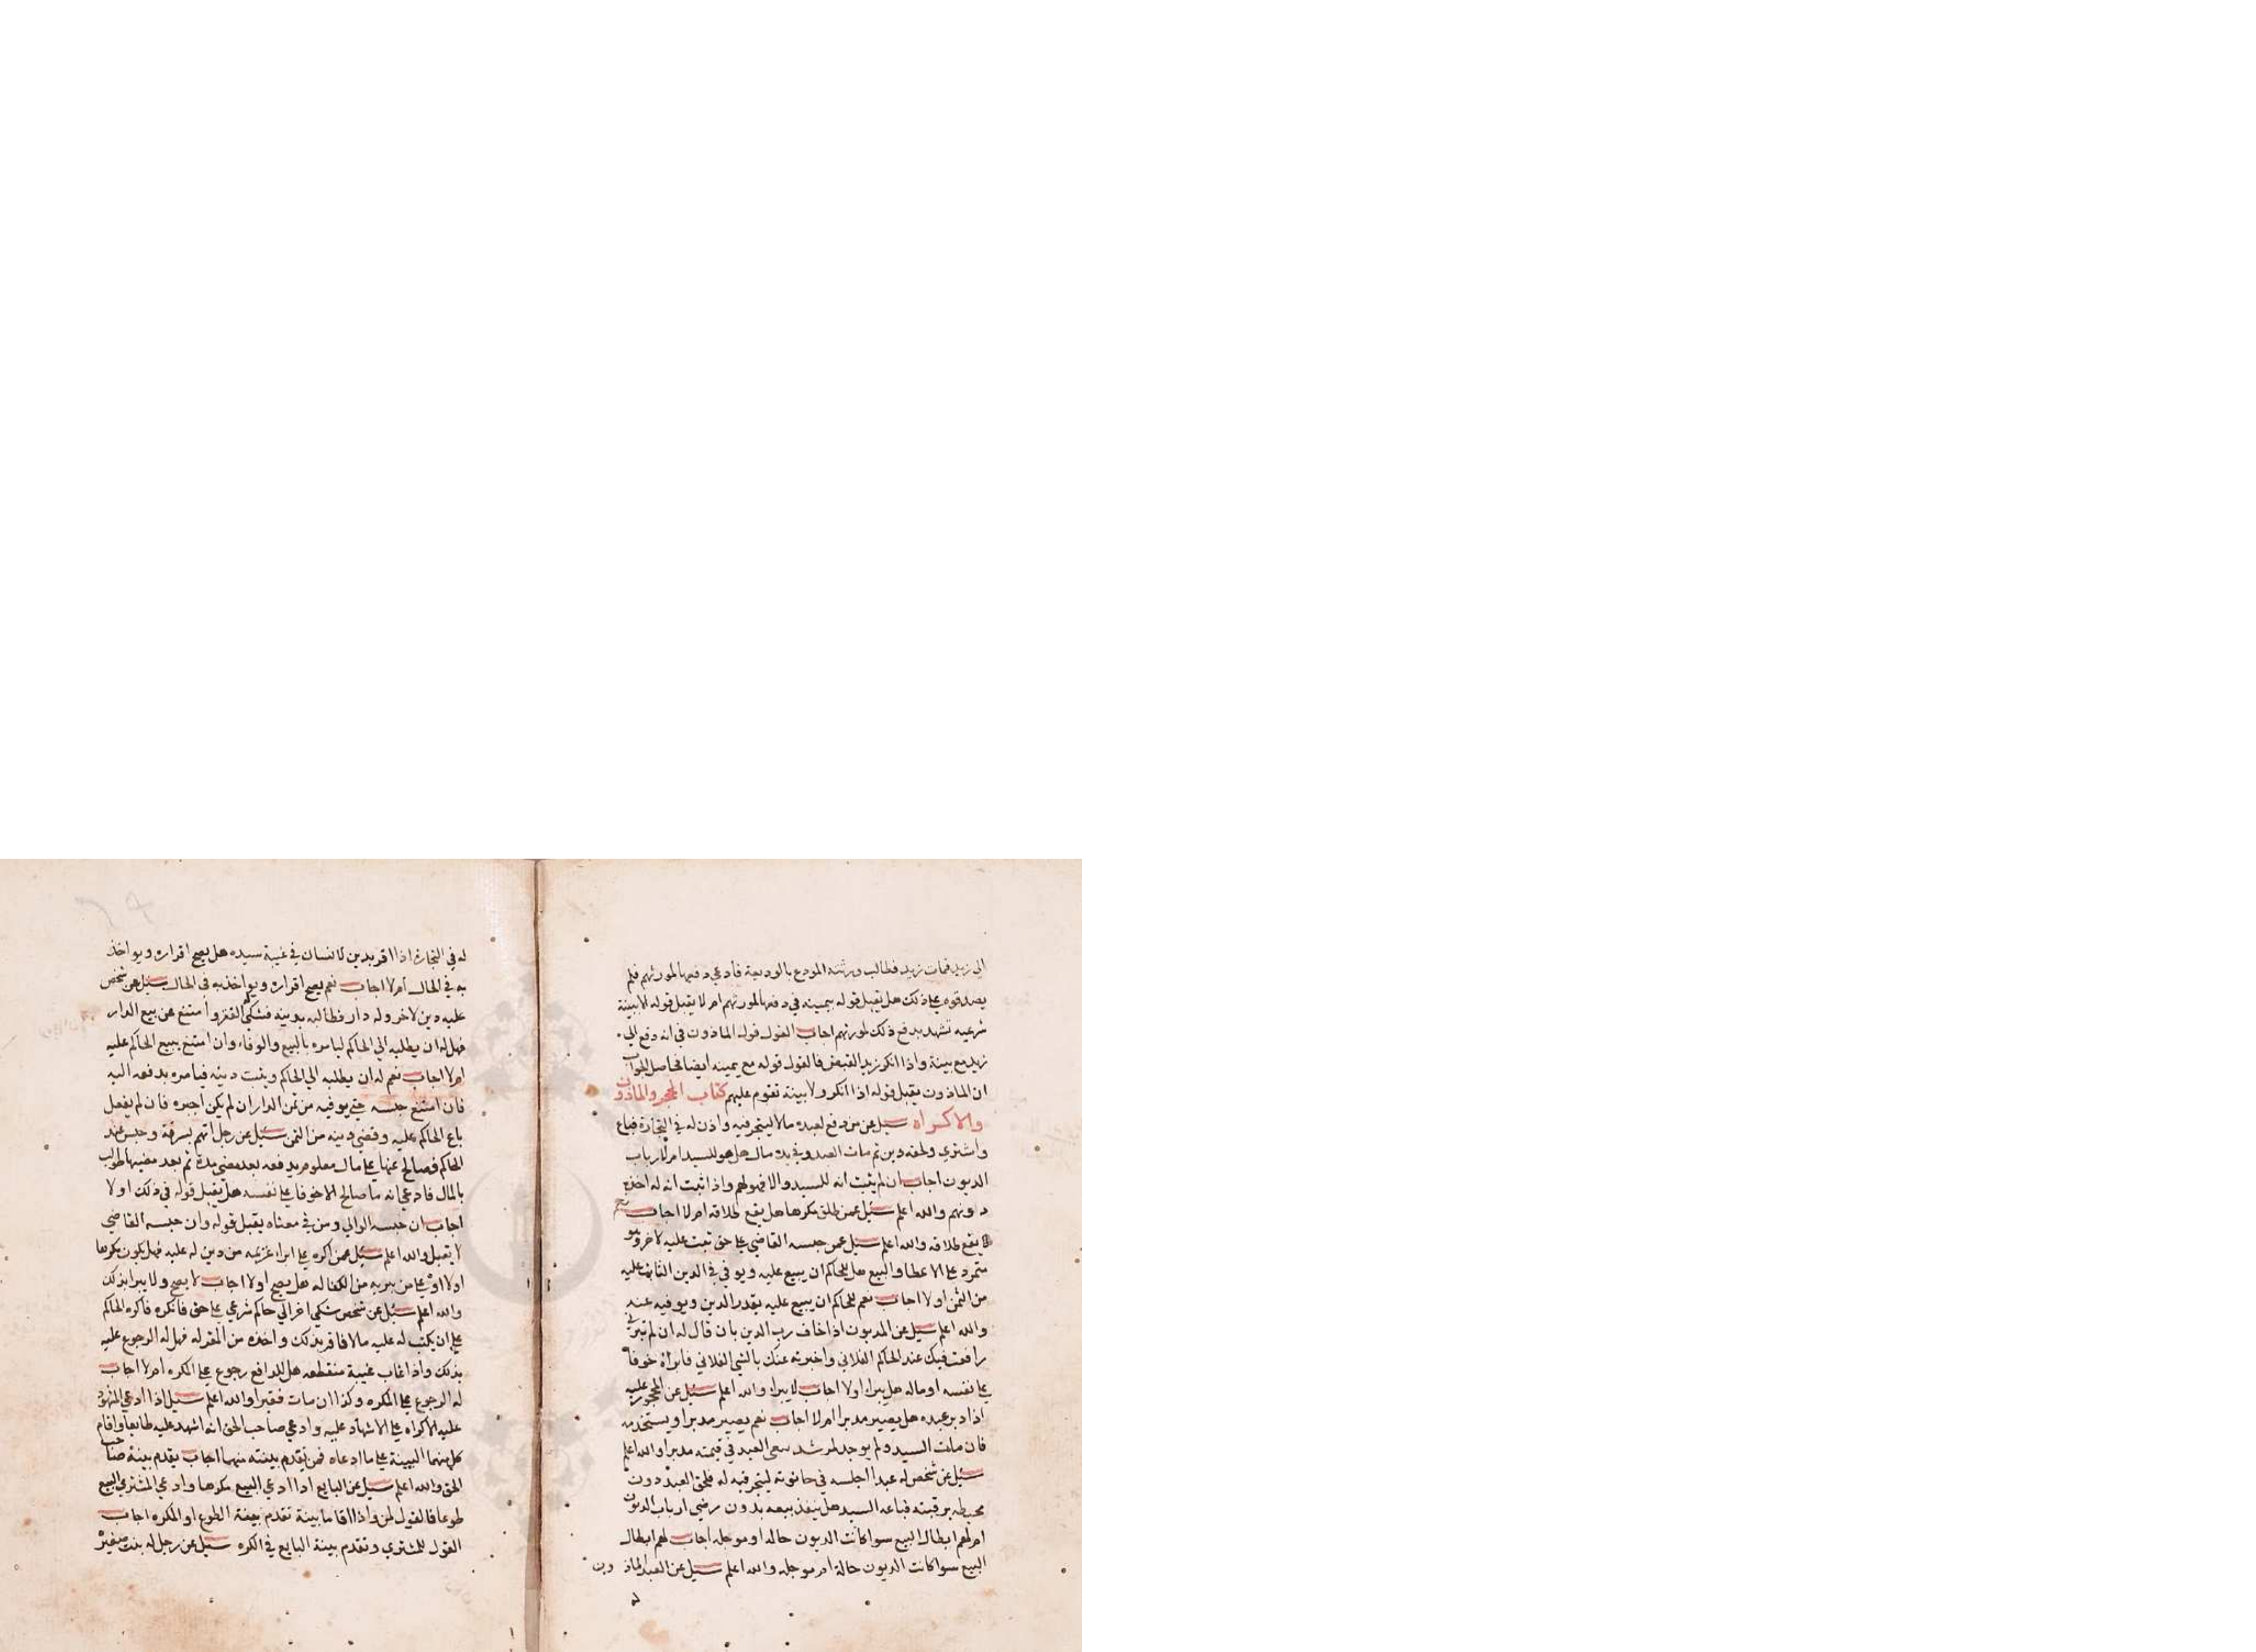 الى زيد فمات زيد فطالب ورثته المودع بالوديعة فادعي دفعها لمورثهم فلم
يصدقوه علي ذلك هل يقبل قوله بيمينه في دفعها لمورثهم ام لا يقبل قوله الا ببينة
شرعيه تشهد بدفع ذلك لمورثهم اجاب القول قول الماذون في انه دفع الي
زيد مع بينة واذا انكر زيد القبض فالقول قوله مع يمينه ايضا فحاصل الجواب
ان الماذون يقبل قوله اذا انكر ولا بينة تقوم عليهم كتاب الحجر والماذون
والاكراه سئل عن من دفع لعبده مالا ليتجر فيه واذن له في التجارة فباع
واشتري ولحقه دين ثم مات العبد وفي يده مال هل هو للسيد ام لارباب
الديون اجاب ان لم يثبت انه للسيد والا فهو لهم واذا ثبت انه له اخذه
دونهم والله اعلم سئل عمن طلق مكرها هل يقع طلاقه ام لا اجاب نعم
يقع طلاقه والله اعلم سئل عمن حبسه القاضي علي حق ثبت عليه لاخر وهو
متمرد علي الاعطا والبيع هل للحاكم ان يبيع عليه ويوفي في الدين الثابت عليه
من الثمن او لا اجاب نعم للحاكم ان يبيع عليه بقدر الدين ويوفيه عنه
والله اعلم سئل عن المديون اذا خاف رب الدين بان قال له ان لم تبرني
رافعت فيك عند الحاكم الفلاني واخبرته عنك بالشي الفلاني فابراه خوفا
علي نفسه او ماله هل يبرا او لا اجاب لا يبرا والله اعلم سئل عن المحجور عليه
اذا دبر عبده هل يصير مدبرا ام لا اجاب نعم يصير مدبرا ويستخدمه
فان مات السيد ولم يوجد لمرشد سعي العبد في قيمته مدبرا والله اعلم
سئل عن شخص له عبد اجلسه في حانوته ليتجر فيه له فلحق العبد ديون
محيطه برقبته فباعه السيد هل ينفذ بيعه بدون رضي ارباب الديون
ام لهم ابطال البيع سوا كانت الديون حاله او موجله اجاب لهم ابطال
البيع سوا كانت الديون حالة ام موجله والله اعلم سئل عن العبد الماذون
له
له في التجارة اذا اقر بدين لانسان في غيبة سيده هل يصح اقراره ويواخذ
به في الحال ام لا اجاب نعم يصح اقراره ويواخذ به في الحال سئل عن شخص
عليه دين لاخر وله دار فطالبه بدينه فشكي الفقر وامتنع عن بيع الدار
فهل له ان يطلبه الي الحاكم ليامره بالبيع والوفاء وان امتنع يبيع الحاكم عليه
ام لا اجاب نعم له ان يطلبه الي الحاكم ويثبت دينه فيامره بدفعه اليه
فان امتنع حبسه حتي يوفيه من ثمن الدار ان لم يكن اجبره فان لم يفعل
باع الحاكم عليه وقضي دينه من الثمن سئل عن رجل اتهم بسرقة وحبس عند
الحاكم فصالح عنها علي مال معلوم يدفعه بعد مضي مدة ثم بعد مضيها طولب
بالمال فادعي انه ما صالح الا خوفا علي نفسه هل يقبل قوله في ذلك او لا
اجاب ان حبسه الوالي ومن في معناه يقبل قوله وان حبسه القاضي
لا يقبل والله اعلم سئل عمن اكره علي ابراء غريمه من دين له عليه فهل يكون مكرها
او لا او علي من يبريه من الكفاله هل يصح او لا اجاب لا يصح ولا يبرا بذلك
والله اعلم سئل عن شخص شكي اخر الي حاكم شرعي علي حق فانكره فاكره الحاكم
علي ان يكتب له عليه مالا فاقر بذلك واخذه من المقر له فهل له الرجوع عليه
بذلك واذا غاب غيبة منقطعه هل للدافع رجوع علي المكره ام لا اجاب
له الرجوع علي المكره وكذا ان مات فقيرا والله اعلم سئل اذا ادعي المشهود
عليه الاكراه علي الاشهاد عليه وادعي صاحب الحق انه اشهد عليه طايعا واقام
كل منهما البينة علي ما ادعاه فمن تقدم بينته منهما اجاب يقدم بينة صاحب
الحق والله اعلم سئل عن البايع اذا ادعي البيع مكرها وادعي المشتري البيع
طوعا فالقول لمن واذا اقاما بينة تقدم بينة الطوع او المكره اجاب
القول للمشتري وتقدم بينة البايع في الكره سئل عن رجل له بنت صغيرة